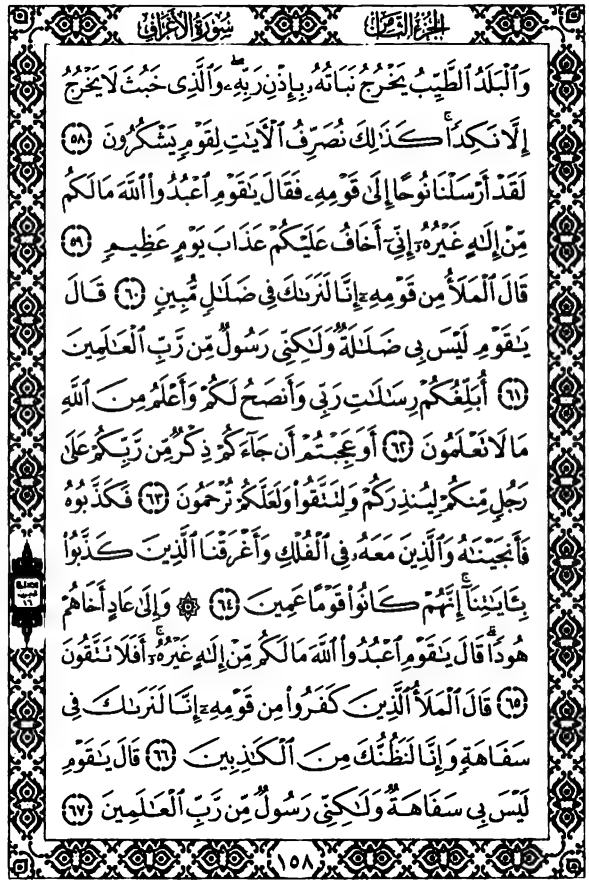 سورة الأعراف
الجزء الثامن
وَٱلْبَلَدُ ٱلطَّيِّبُ يَخْرُجُ نَبَاتُهُۥ بِإِذْنِ رَبِّهِۦ ۖ وَٱلَّذِى خَبُثَ لَا يَخْرُجُ
إِلَّا نَكِدًا ۚ كَذَٰلِكَ نُصَرِّفُ ٱلْـَٔايَٰتِ لِقَوْمٍ يَشْكُرُونَ ٥٨
لَقَدْ أَرْسَلْنَا نُوحًا إِلَىٰ قَوْمِهِۦ فَقَالَ يَٰقَوْمِ ٱعْبُدُوا۟ ٱللَّهَ مَا لَكُم
مِّنْ إِلَٰهٍ غَيْرُهُۥٓ إِنِّىٓ أَخَافُ عَلَيْكُمْ عَذَابَ يَوْمٍ عَظِيمٍ ٥٩
قَالَ ٱلْمَلَأُ مِن قَوْمِهِۦٓ إِنَّا لَنَرَىٰكَ فِى ضَلَٰلٍ مُّبِينٍ ٦٠ قَالَ
يَٰقَوْمِ لَيْسَ بِى ضَلَٰلَةٌ وَلَٰكِنِّى رَسُولٌ مِّن رَّبِّ ٱلْعَٰلَمِينَ
٦١ أُبَلِّغُكُمْ رِسَٰلَٰتِ رَبِّى وَأَنصَحُ لَكُمْ وَأَعْلَمُ مِنَ ٱللَّهِ
مَا لَا تَعْلَمُونَ ٦٢ أَوَعَجِبْتُمْ أَن جَآءَكُمْ ذِكْرٌ مِّن رَّبِّكُمْ عَلَىٰ
رَجُلٍ مِّنكُمْ لِيُنذِرَكُمْ وَلِتَتَّقُوا۟ وَلَعَلَّكُمْ تُرْحَمُونَ ٦٣ فَكَذَّبُوهُ
فَأَنجَيْنَٰهُ وَٱلَّذِينَ مَعَهُۥ فِى ٱلْفُلْكِ وَأَغْرَقْنَا ٱلَّذِينَ كَذَّبُوا۟
بِـَٔايَٰتِنَآ ۚ إِنَّهُمْ كَانُوا۟ قَوْمًا عَمِينَ ٦٤ ۞ وَإِلَىٰ عَادٍ أَخَاهُمْ
هُودًا ۗ قَالَ يَٰقَوْمِ ٱعْبُدُوا۟ ٱللَّهَ مَا لَكُم مِّنْ إِلَٰهٍ غَيْرُهُۥٓ ۚ أَفَلَا تَتَّقُونَ
٦٥ قَالَ ٱلْمَلَأُ ٱلَّذِينَ كَفَرُوا۟ مِن قَوْمِهِۦٓ إِنَّا لَنَرَىٰكَ فِى
سَفَاهَةٍ وَإِنَّا لَنَظُنُّكَ مِنَ ٱلْكَٰذِبِينَ ٦٦ قَالَ يَٰقَوْمِ
لَيْسَ بِى سَفَاهَةٌ وَلَٰكِنِّى رَسُولٌ مِّن رَّبِّ ٱلْعَٰلَمِينَ ٦٧
١٥٨